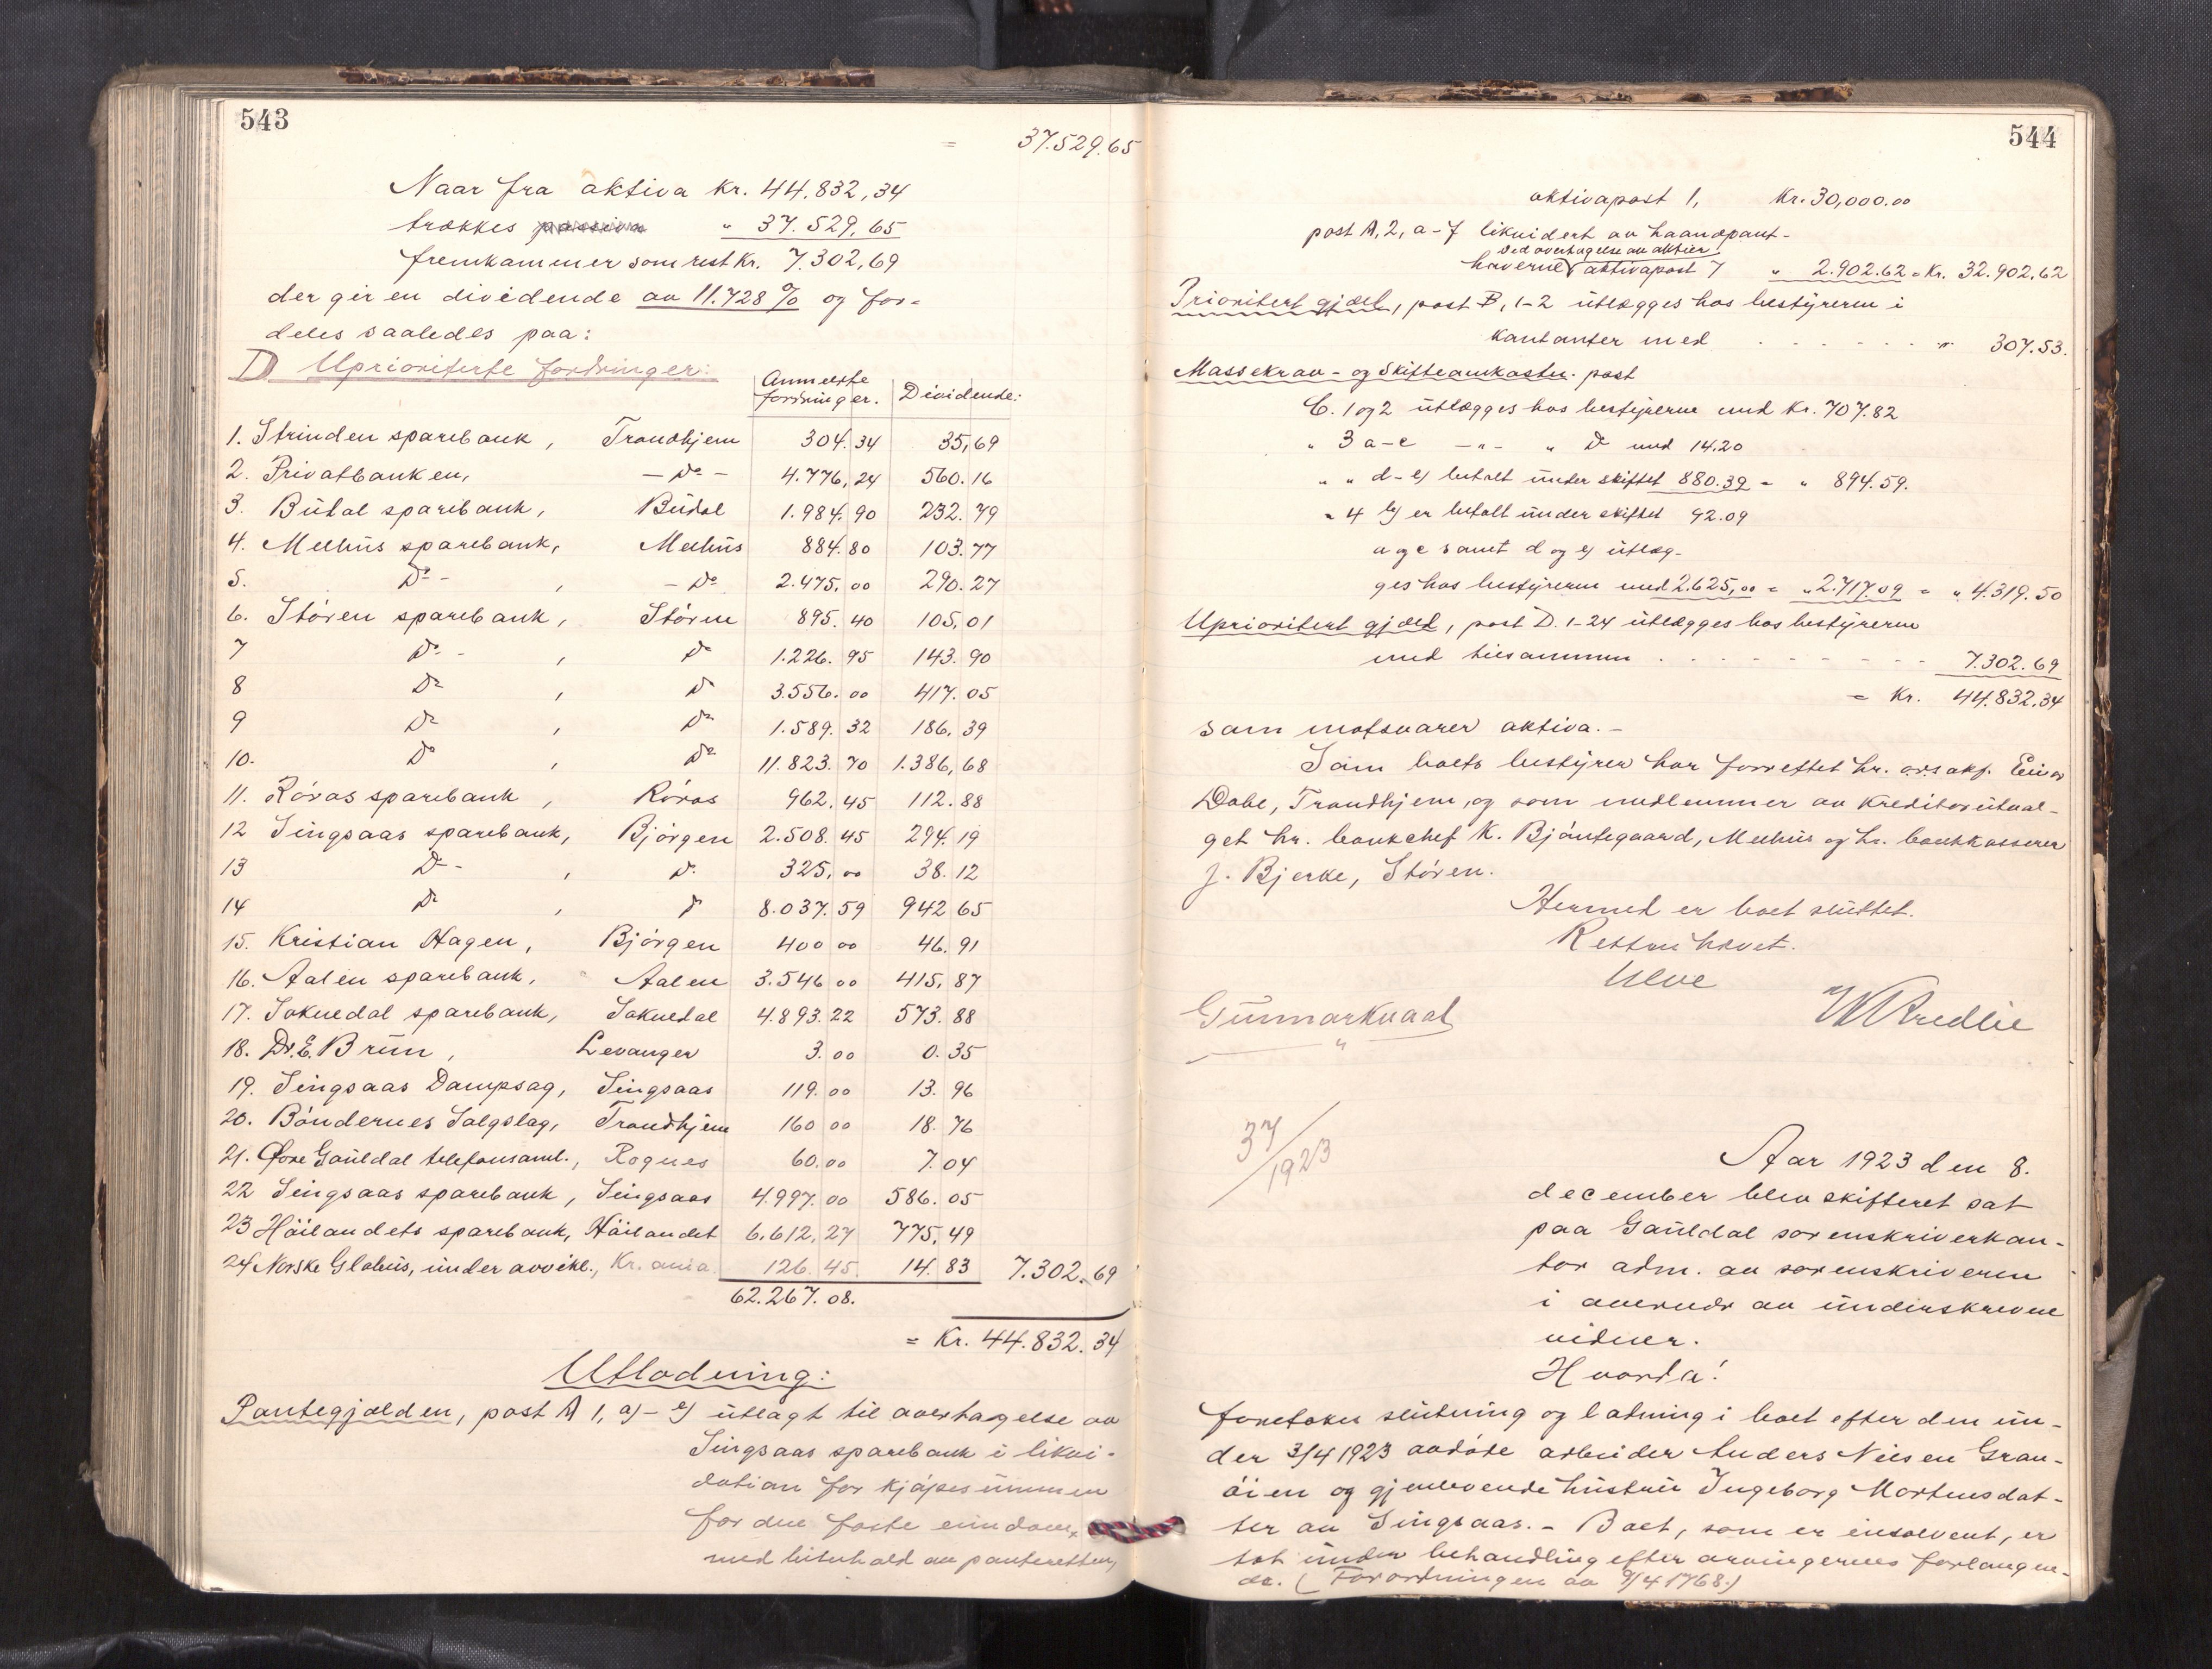 543
= 37.529.65
Naar fra aktiva kr. 44.832,34
trækkes passiva " 37.529,65
fremkommer som rest Kr. 7.302,69
der gir en dividende av 11.728 % og for-
deles saaledes paa:
D Uprioriterte fordringer:
Anmeldte fordringer. Dividende:
1. Strinden sparebank, Trondhjem 304.34 35,69
2. Privatbanken, - Do - 4.776,24 560.16
3. Budal sparebank, Budal 1.984.90 232.79
4. Melhus sparebank, Melhus 884.80 103.77
5. Do - , - Do 2.475.00 290.27
6. Støren sparebank, Støren 895.40 105,01
7 Do - , Do 1.226.95 143.90
8 Do , Do 3.556.00 417.05
9 Do , Do 1.589.32 186,39
10. Do , Do 11.823.70 1.386,68
11. Røros sparebank, Røros 962.45 112.88
12 Singsaas sparebank, Bjørgen 2.508.45 294.19
13 Do - , Do 325,00 38.12
14 Do , Do 8.037.59 942 65
15. Kristian Hagen, Bjørgen 400 00 46.91
16. Aalen sparebank, Aalen 3.546 00 415,87
17. Soknedal sparebank, Soknedal 4.893.22 573.88
18. Dr. E. Bruun, Levanger 3.00 0.35
19. Singsaas Dampsag, Singsaas 119.00 13.96
20. Bøndernes Salgslag, Trondhjem 160 00 18.76
21. Øvre Gauldal telefonsaml., Rognes 60.00 7.04
22 Singsaas sparebank, Singsaas 4.997.00 586.05
23 Høilandets sparebank, Høilandet 6.612,27 775,49
24 Norske Globus, under avvikl., Kr.ania. 126.45. 14.83 7.302.69
62.267.08.
= Kr. 44.832.34
Utlodning:
Pantegjælden, post A 1, a) - e) utlagt til overtagelse av
Singsaas sparebank i likvi-
dation for kjøpesummen
for den faste eiendom,
med bibehold av panteretten,
544
aktivapost 1, Kr. 30,000.00
post A, 2, a-f likvidert av haandpant-
ved overtagelse av aktier
haverne aktivapost 7 " 2.902.62 = Kr. 32.902.62
Prioritert gjæld, post B, 1-2 utlægges hos bestyreren i
kontanter med . . . . . . " 307.53.
Massekrav- og Skifteomkostn. post
C. 1 og 2 utlægges hos bestyrerne med Kr. 707.82
" 3 a-c - " - " Do med 14.20
" " d-e) betalt under skiftet 880.39 = " 894.59.
" 4 b) er betalt under skiftet 92.09
a og c samt d og e) utlæg-
ges hos bestyreren med 2.625,00 = " 2.717.09 = " 4.319.50
Uprioritert gjæld, post D. 1-24 utlægges hos bestyreren
med tilsammen . . . . . . . . 7.302.69
= Kr. 44.832.34
som motsvarer aktiva. -
Som boets bestyrer har forrettet hr. o.r.sakf. Einar
Dahl, Trondhjem, og som medlemmer av kreditorutval-
get hr. bankchef K. Bjøntegaard, Melhus og hr. bankkasserer
J. Bjerke, Støren.
Hermed er boet sluttet.
Retten hævet.
Ulve
Gunnar Kvaal
37/1923
Aar 1923 den 8.
december blev skifteret sat
paa Gauldal sorenskriverkon-
tor adm. av sorenskriveren
i overvær av underskrevne
vidner.
Hvorda!
foretokes slutning og lodning i boet efter den un-
der 3/4 1923 avdøde arbeider Anders Nilsen Gran-
øien og gjenlevende hustru Ingeborg Mortensdat-
ter av Singsaas. - Boet, som er insolvent, er
tat under behandling efter arvingernes forlangen-
de. (Forordningen av 9/4 1768.)